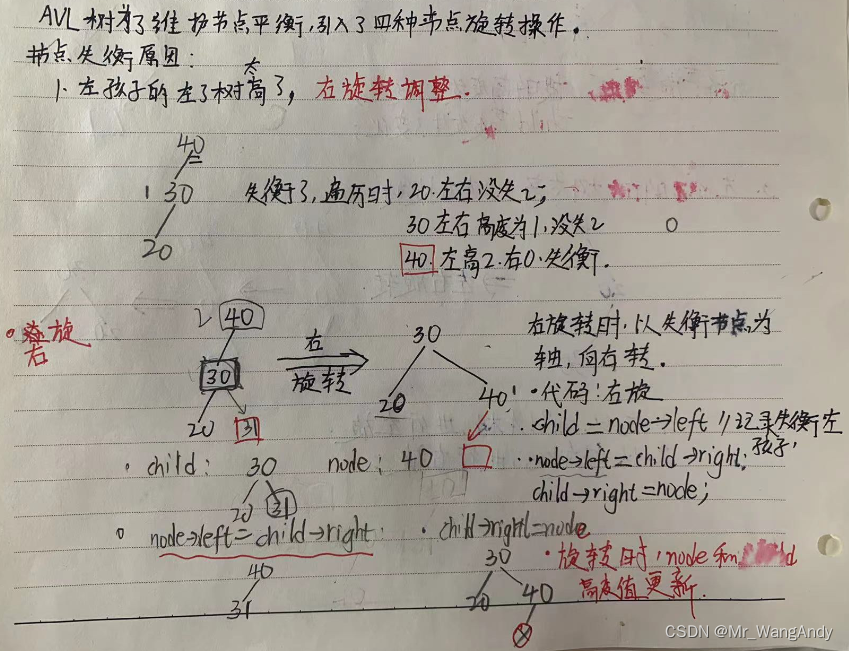 AVL树为了维护节点平衡,引入了四种节点旋转操作。
节点失衡原因:
1. 左孩子的左子树太高了, 右旋转调整.
40
1 30
20
失衡了,遍历时,20左右没失2;
30左右高度为1,没失2
40 左高2.右0.失衡.
右旋
2 40
30
20 31
右
旋转
30
20 40
右旋转时,以失衡节点为
轴,向右转.
·代码:右旋
child=node→left //记录失衡左
孩子,
node→left=child→right;
child→right=node;
·child: 30
20 31
node: 40
node→left=child→right;
40
31
·child→right=node
30
20 40
·旋转时,node和child
高度值更新.
CSDN @Mr_WangAndy